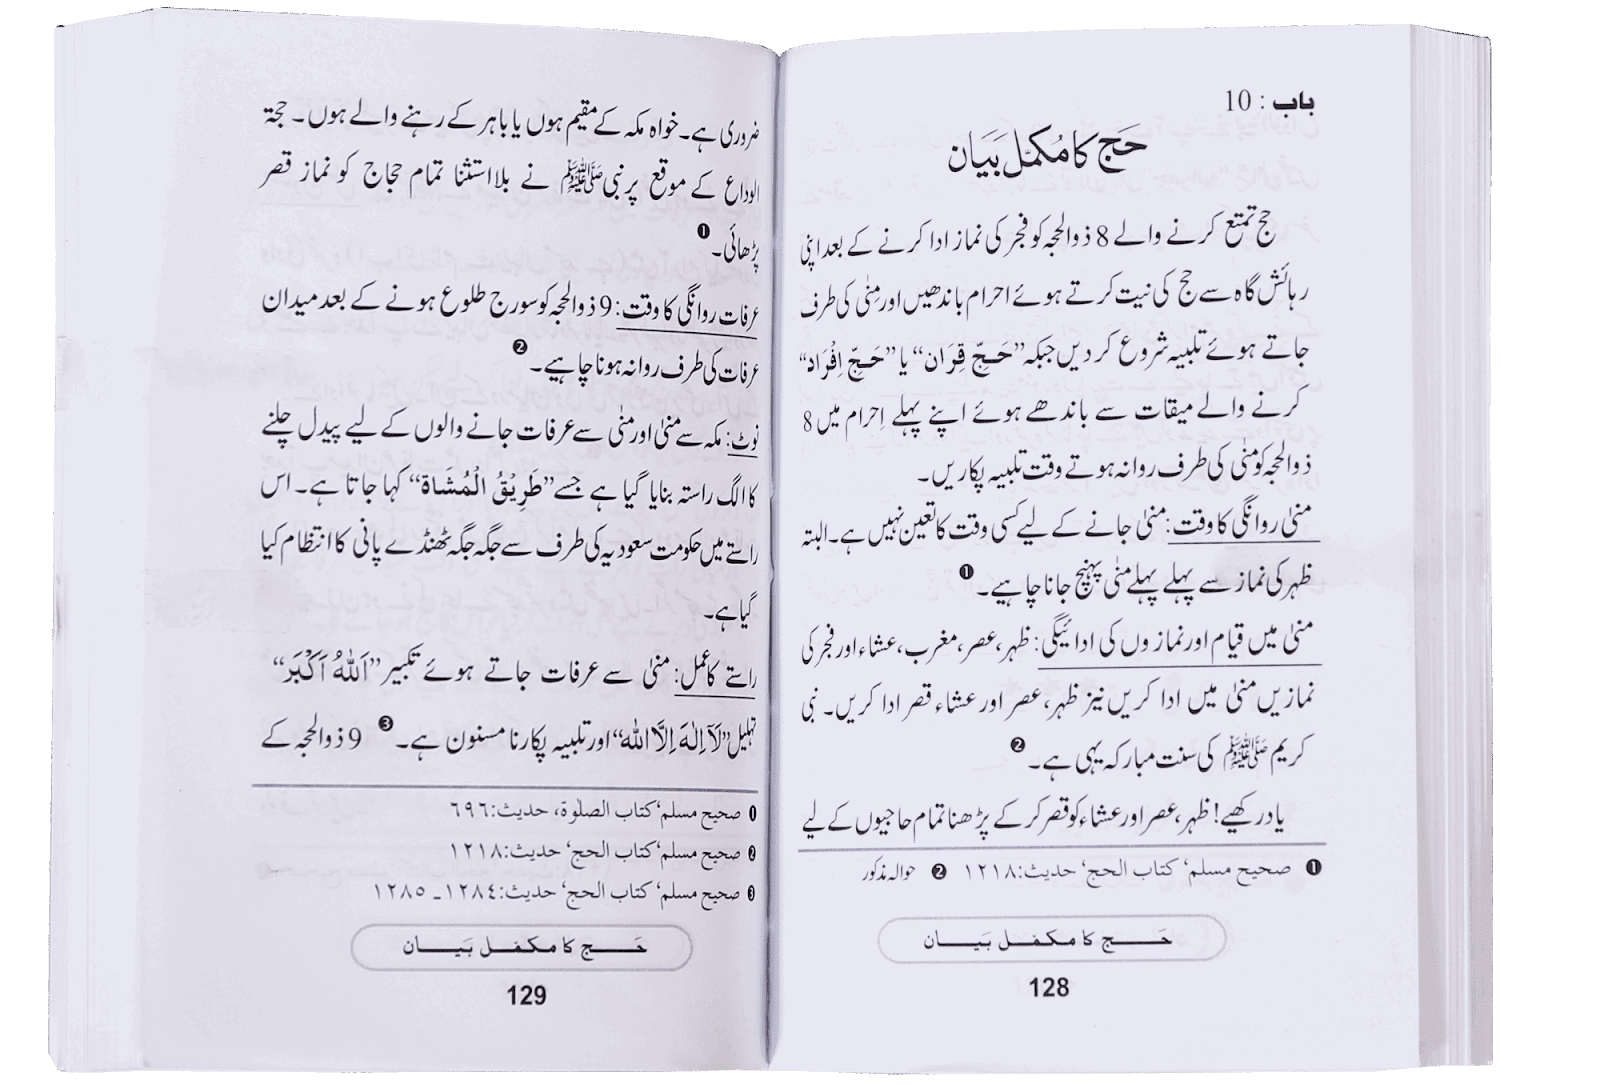 باب : 10
حَج کا مُکمّل بَیَان
حج تمتع کرنے والے 8 ذوالحجہ کو فجر کی نماز ادا کرنے کے بعد اپنی
رہائش گاہ سے حج کی نیت کرتے ہوئے احرام باندھیں اور مِنٰی کی طرف
جاتے ہوئے تلبیہ شروع کر دیں جبکہ ”حَجِّ قِرَان“ یا ”حَجِّ اِفْرَاد“
کرنے والے میقات سے باندھے ہوئے اپنے پہلے اِحرام میں 8
ذوالحجہ کو منٰی کی طرف روانہ ہوتے وقت تلبیہ پکاریں۔
منٰی روانگی کا وقت: منٰی جانے کے لیے کسی وقت کا تعین نہیں ہے۔ البتہ
ظہر کی نماز سے پہلے پہلے منٰی پہنچ جانا چاہیے۔ ❶
منٰی میں قیام اور نمازوں کی ادائیگی: ظہر، عصر، مغرب، عشاء اور فجر کی
نمازیں منٰی میں ادا کریں نیز ظہر، عصر اور عشاء قصر ادا کریں۔ نبی
کریم ﷺ کی سنت مبارکہ یہی ہے۔ ❷
یاد رکھیے! ظہر، عصر اور عشاء کو قصر کر کے پڑھنا تمام حاجیوں کے لیے
❶ صحیح مسلم، کتاب الحج، حدیث:١٢١٨ ❷ حوالہ مذکور
حَج کا مکمل بَیَان
128
ضروری ہے۔ خواہ مکہ کے مقیم ہوں یا باہر کے رہنے والے ہوں۔ حجۃ
الوداع کے موقع پر نبی ﷺ نے بلا استثنا تمام حجاج کو نماز قصر
پڑھائی۔ ❶
عرفات روانگی کا وقت: 9 ذوالحجہ کو سورج طلوع ہونے کے بعد میدان
عرفات کی طرف روانہ ہونا چاہیے۔ ❷
نوٹ: مکہ سے منٰی اور منٰی سے عرفات جانے والوں کے لیے پیدل چلنے
کا الگ راستہ بنایا گیا ہے جسے ”طَرِیْقُ الْمُشَاة“ کہا جاتا ہے۔ اس
راستے میں حکومت سعودیہ کی طرف سے جگہ جگہ ٹھنڈے پانی کا انتظام کیا
گیا ہے۔
راستے کا عمل: منٰی سے عرفات جاتے ہوئے تکبیر ”اَللهُ اَكْبَرَ“
تہلیل ”لَآ اِلٰهَ اِلَّا الله“ اور تلبیہ پکارنا مسنون ہے۔ ❸ 9 ذوالحجہ کے
❶ صحیح مسلم، کتاب الصلٰوة، حدیث:٦٩٦
❷ صحیح مسلم، کتاب الحج، حدیث:١٢١٨
❸ صحیح مسلم، کتاب الحج، حدیث:١٢٨٤۔ ١٢٨٥
حَج کا مکمل بَیَان
129